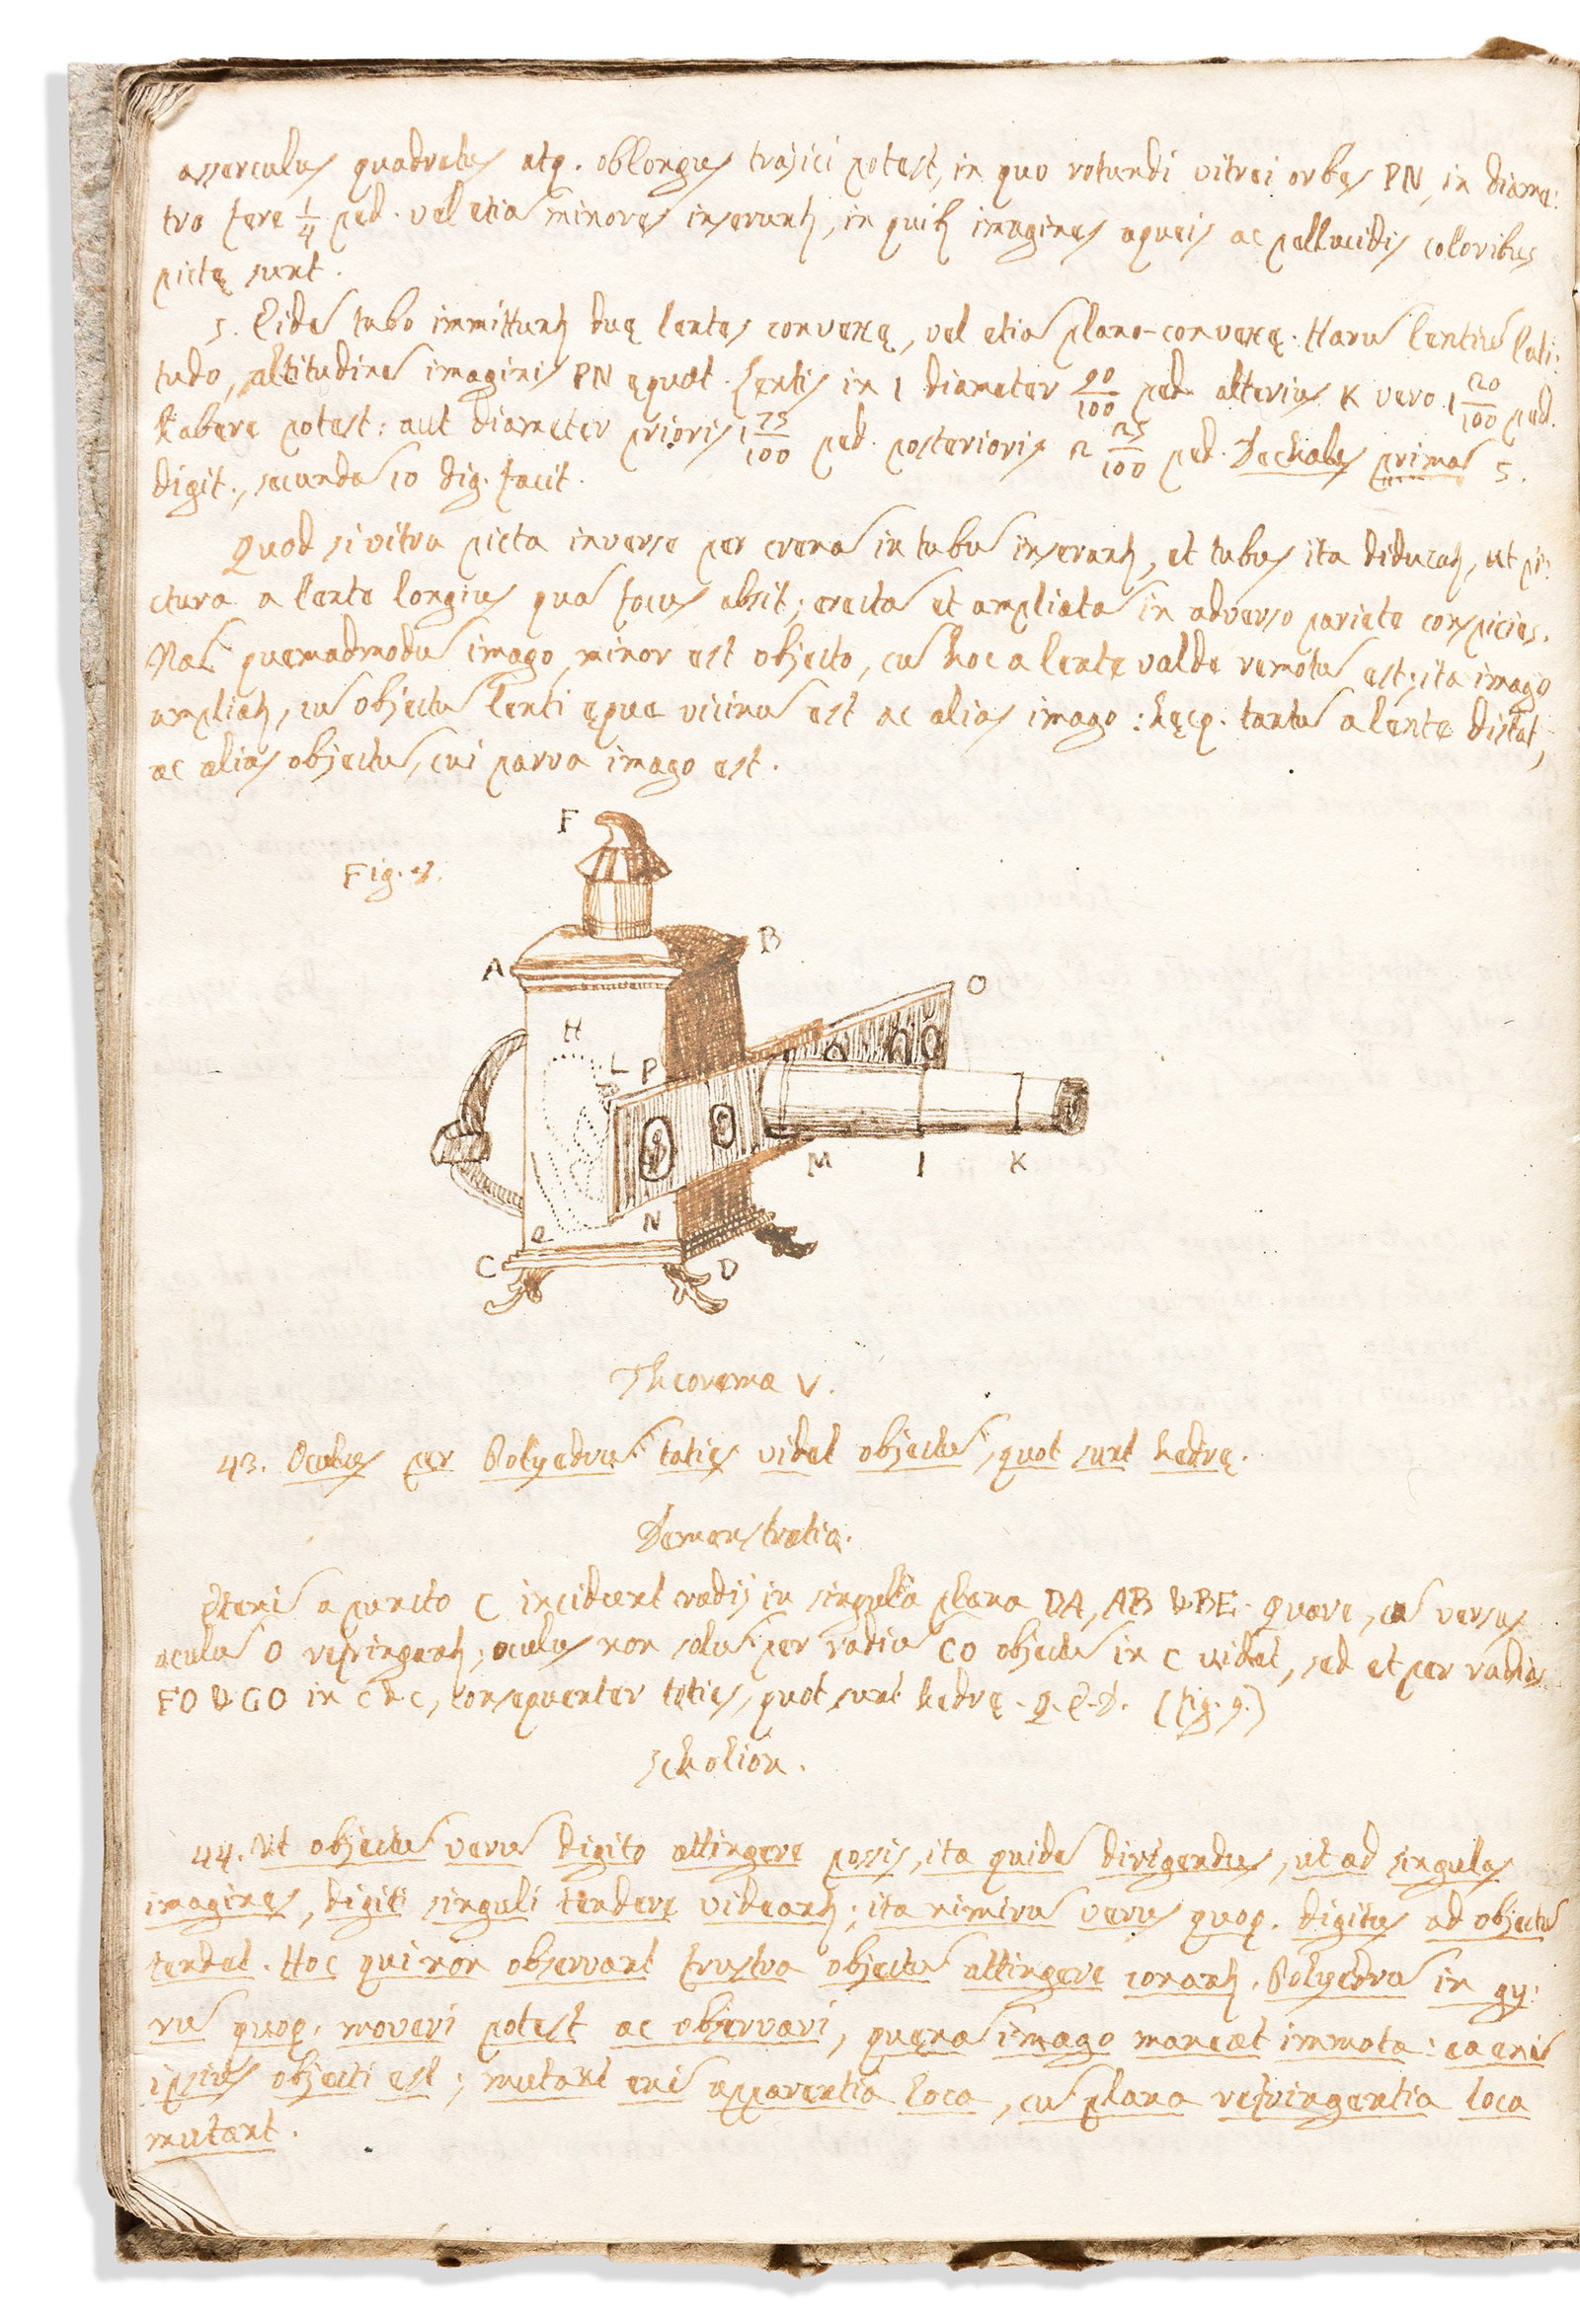 asserculus quadratus atq. oblongus trajici potest, in quo rotundi vitrei orbes PN, in diame:
tro fere 1/4 ped. vel etiã minores inserunt, in quib imagines aqueis ac pellucidis coloribus
pictę sunt.
5. Eidẽ tubo immittunt duę lentes convexę, vel etiã plano-convexę. Harũ lentiũ lati:
tudo, altitudinẽ imaginis PN ęquat. Lentis in I diameter 90/100 ped. alterius K vero 1 20/100 ped.
habere potest: aut diameter prioris 1 75/100 ped. posterioris 2 25/100 ped. Dechales primã 5.
digit., secundã 10 dig. facit.
Quod si vitra picta inverse per crenã in tubũ inserant, et tubus ita diducat, ut pi:
ctura a lente longius quã focus absit; erectã et ampliatã in adverso pariete conspicies.
Nã quemadmodũ imago minor est objecto, cũ hoc a lente valde remotũ est; ita imago
ampliat, cũ objectũ lenti ęque vicinũ est ac alias imago: hęcq. tantũ a lente distat,
ac alias objectũ, cui parva imago est.
F
Fig. 8.
A
B
O
H
L P
M I K
N
C
D
Theorema V.
43. Oculus per Polyedrũ toties videt objectũ, quot sunt hedrę.
Demonstratio.
Etenĩ a puncto C incidunt radij in singula plana DA, AB & BE. Quare, cũ versus
oculũ O refringant; oculus non solũ per radiũ CO objectũ in C videt, sed et per radios
FO & GO in c & c, consequenter toties, quot sunt hedrę. Q.E.D. (fig. 9.)
Scholion.
44. Ut objectũ verũ digito attingere possis, ita quidẽ dirigendus, ut ad singulas
imagines, digiti singuli tendere videant; ita nimirũ verus quoq. digitus ad objectũ
tendet. Hoc qui non observant frustra objectũ attingere conant. Polyedrũ in gy:
rũ quoq. moveri potest ac observari, quęnã imago maneat immota: ea enĩ
ipsius objecti est; mutant enĩ apparentia loca, cũ plana refringentia loca
mutant.